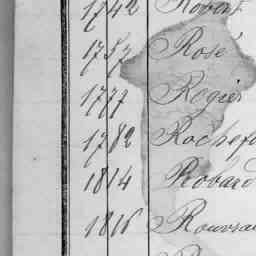 1742 Robert
1757 Rosé
1777 Rogier
1782 Rochefo
1814 Rovard
1816 Rouvra